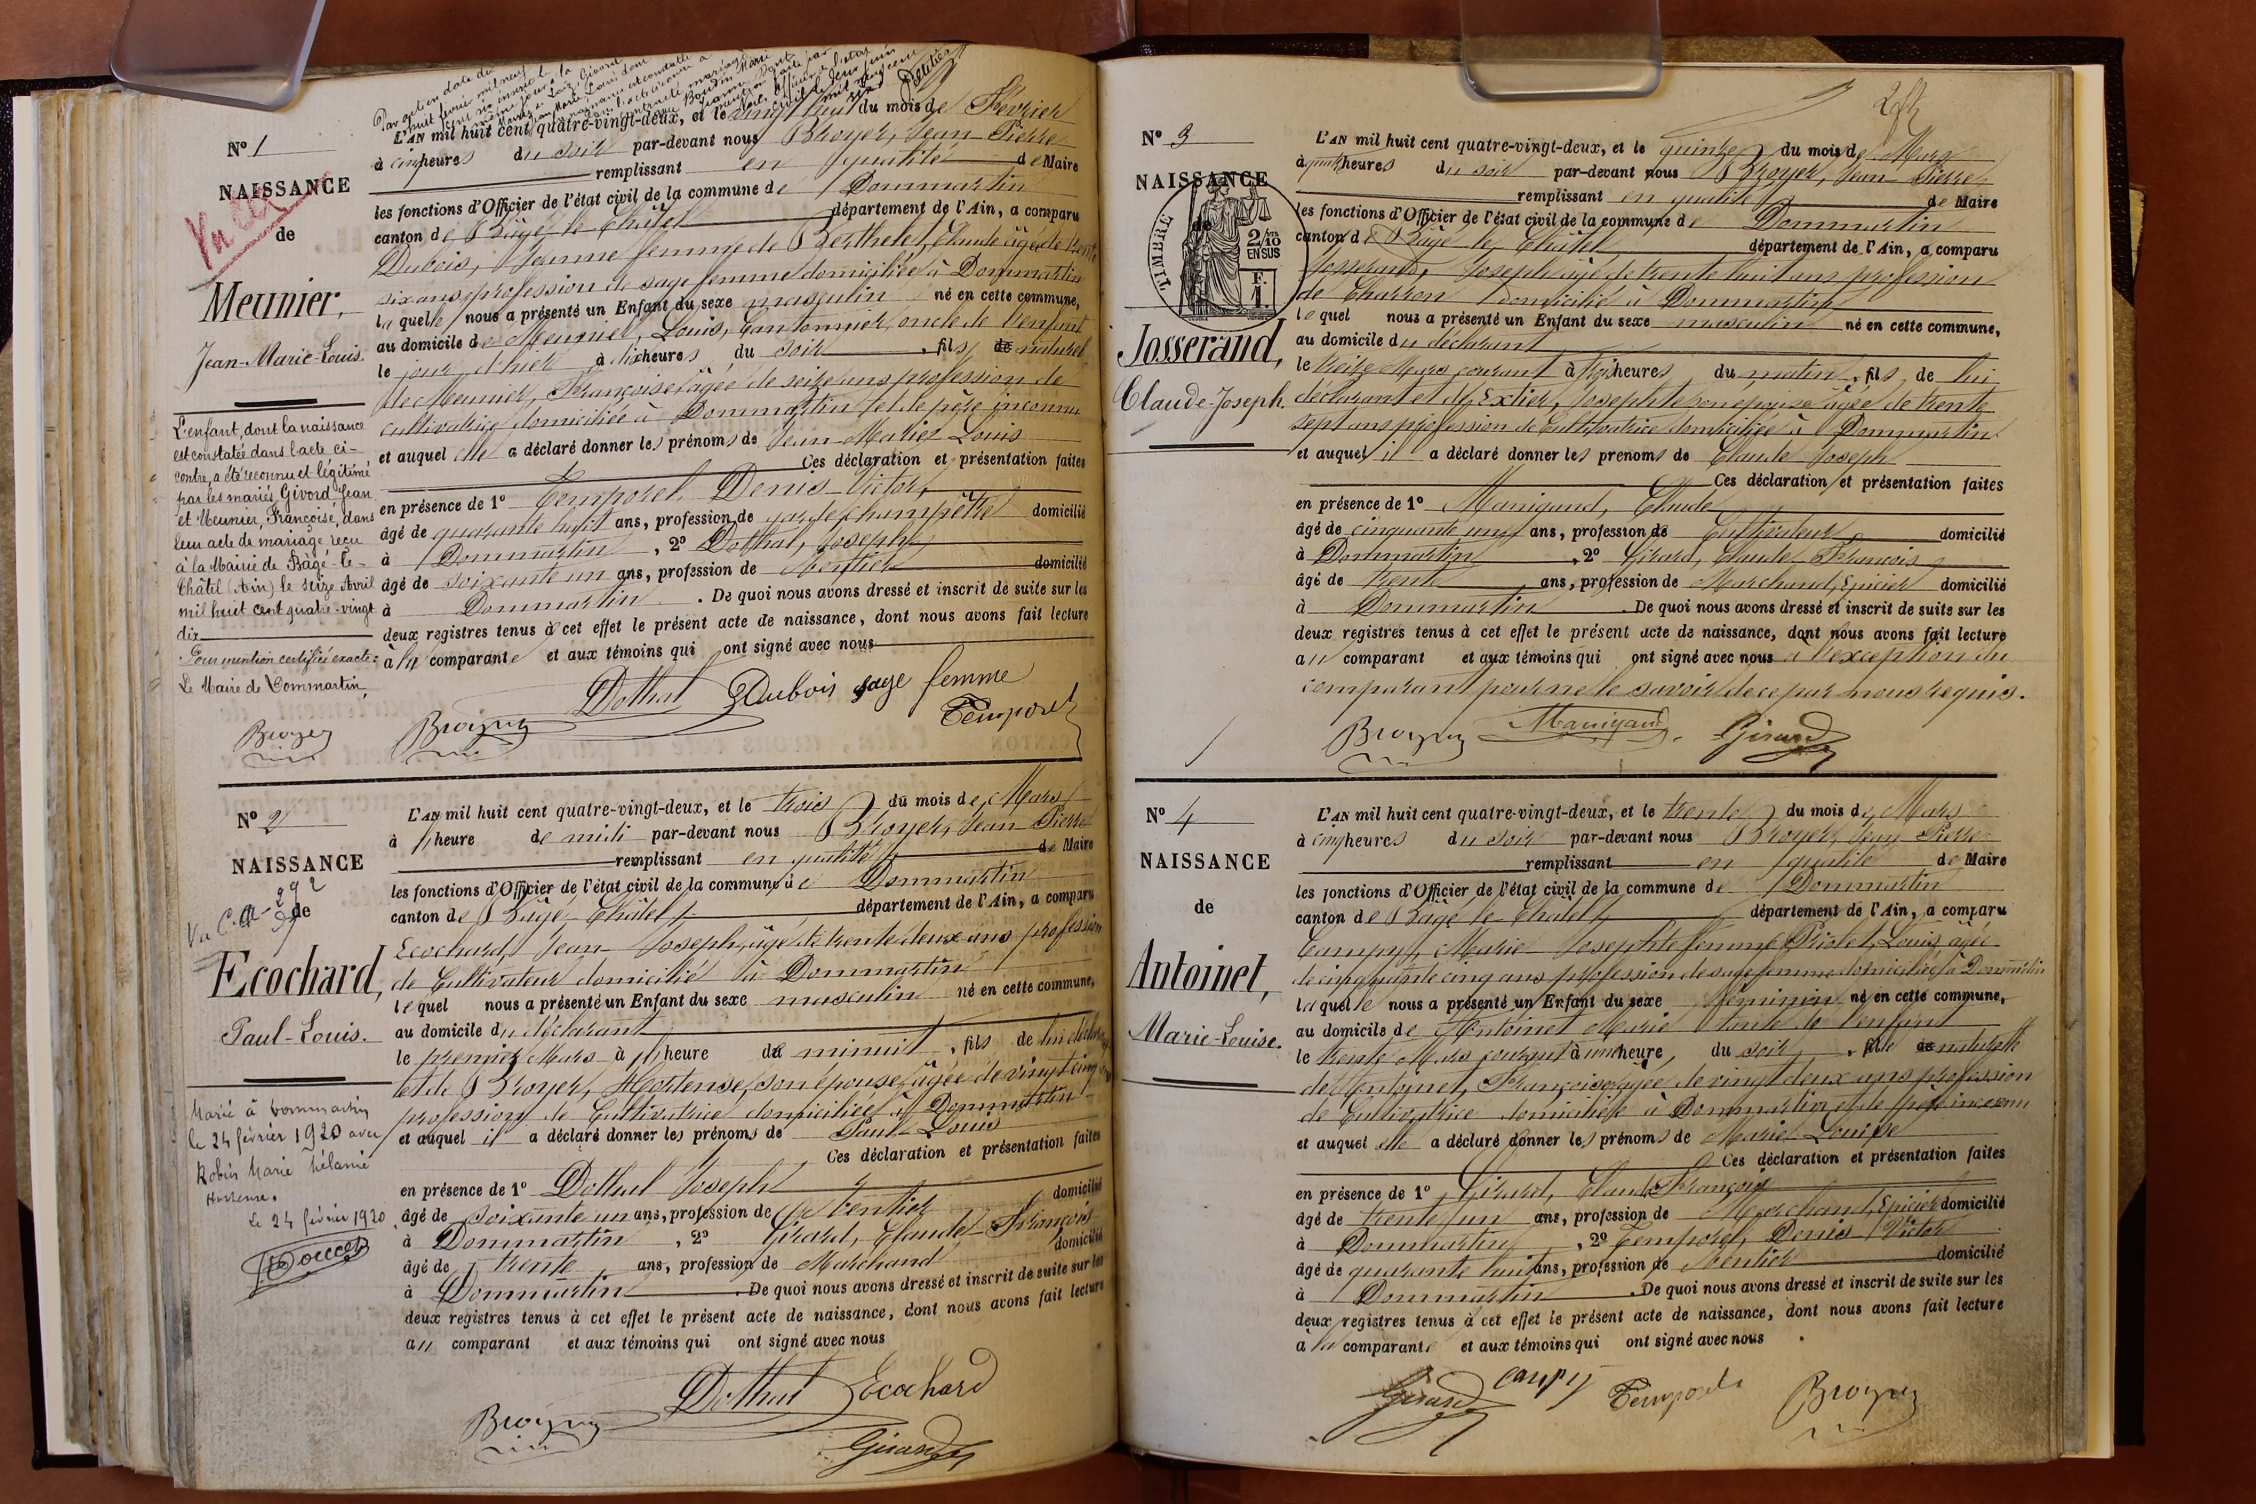 Par action date du
huit février mil neuf
N° 1
NAISSANCE
de
Meunier,
Jean-Marie-Louis.
L'enfant, dont la naissance
est constatée dans l'acte ci-
contre, a été reconnu et légitimé
par les mariés Givord Jean
et Meunier, Françoise, dans
leur acte de mariage reçu
à la Mairie de Bâgé-le-
Châtel (Ain) le seize Avril
mil huit cent quatre-vingt
dix
Pour mention certifiée exacte:
Le Maire de Dommartin,
Broyer
L'AN mil huit cent quatre-vingt-deux, et le vingt huit du mois de Février
à cinq heures du soir par-devant nous Broyer, Jean-Pierre
remplissant en qualité de Maire
les fonctions d'Officier de l'état civil de la commune de Dommartin
canton de Bâgé-le-Châtel département de l'Ain, a comparu
Dubois, Jeanne femme de Berthelet, Claude âgée de trente
six ans profession de sage femme domiciliée à Dommartin
laquelle nous a présenté un Enfant du sexe masculin né en cette commune,
au domicile de Meunier, Louis, Cantonnier, oncle de l'enfant
le jour d'hier à dix heures du soir, fils de naturel
de Meunier, Françoise âgée de seize ans profession de
cultivatrice domiciliée à Dommartin et de père inconnu
et auquel elle a déclaré donner les prénoms de Jean-Marie Louis
Ces déclaration et présentation faites
en présence de 1° Temporel Denis-Victor,
âgé de quarante huit ans, profession de garde champêtre domicilié
à Dommartin, 2° Dothal, Joseph
âgé de soixante un ans, profession de Rentier domicilié
à Dommartin. De quoi nous avons dressé et inscrit de suite sur les
deux registres tenus à cet effet le présent acte de naissance, dont nous avons fait lecture
à la comparante et aux témoins qui ont signé avec nous
Dothal Dubois sage femme
Broyer Temporel
N° 2
NAISSANCE
de
Ecochard,
Paul-Louis.
Marié à Dommartin
le 24 février 1920 avec
Robin Marie Mélanie
Hortense.
Le 24 février 1920
L'AN mil huit cent quatre-vingt-deux, et le trois du mois de Mars
à 1 heure de midi par-devant nous Broyer, Jean-Pierre
remplissant en qualité de Maire
les fonctions d'Officier de l'état civil de la commune de Dommartin
canton de Bâgé-Châtel département de l'Ain, a comparu
Ecochard, Jean-Joseph, âgé de trente deux ans profession
de Cultivateur domicilié à Dommartin
lequel nous a présenté un Enfant du sexe masculin né en cette commune,
au domicile du déclarant
le premier Mars à 1 heure de minuit, fils de lui déclarant
et de Broyer, Hortense, son épouse, âgée de vingt cinq
profession de Cultivatrice domiciliée à Dommartin
et auquel il a déclaré donner les prénoms de Paul-Louis
Ces déclaration et présentation faites
en présence de 1° Dothal Joseph
âgé de soixante un ans, profession de Rentier domicilié
à Dommartin, 2° Girard, Claude-François
âgé de trente ans, profession de Marchand domicilié
à Dommartin. De quoi nous avons dressé et inscrit de suite sur les
deux registres tenus à cet effet le présent acte de naissance, dont nous avons fait lecture
au comparant et aux témoins qui ont signé avec nous
Dothal Ecochard
Broyer Girard
N° 3
NAISSANCE
de
TIMBRE
2/10
EN SUS
F.
1.
Josserand,
Claude-Joseph.
L'AN mil huit cent quatre-vingt-deux, et le quinze du mois de Mars
à heures du soir par-devant nous Broyer, Jean-Pierre
remplissant en qualité de Maire
les fonctions d'Officier de l'état civil de la commune de Dommartin
canton de Bâgé le Châtel département de l'Ain, a comparu
Josserand, Joseph âgé de trente huit ans profession
de Charron domicilié à Dommartin
lequel nous a présenté un Enfant du sexe masculin né en cette commune,
au domicile du déclarant
le treize Mars courant à trois heures du matin, fils de lui
déclarant et de Extier, Josephte son épouse âgée de trente
sept ans profession de Cultivatrice domiciliée à Dommartin
et auquel il a déclaré donner les prénoms de Claude Joseph
Ces déclaration et présentation faites
en présence de 1° Manigand, Claude
âgé de cinquante neuf ans, profession de Cultivateur domicilié
à Dommartin, 2° Girard, Claude François
âgé de trente ans, profession de Marchand, Epicier domicilié
à Dommartin. De quoi nous avons dressé et inscrit de suite sur les
deux registres tenus à cet effet le présent acte de naissance, dont nous avons fait lecture
au comparant et aux témoins qui ont signé avec nous à l'exception du
comparant pour ne le savoir de ce par nous requis.
Broyer Manigand Girard
N° 4
NAISSANCE
de
Antoinet,
Marie-Louise.
L'AN mil huit cent quatre-vingt-deux, et le trente du mois de Mars
à cinq heures du soir par-devant nous Broyer, Jean Pierre
remplissant en qualité de Maire
les fonctions d'Officier de l'état civil de la commune de Dommartin
canton de Bâgé le Châtel département de l'Ain, a comparu
Campy, Marie Josephte femme Priolet, Louis âgée
de cinquante cinq ans profession de sage femme domiciliée à Dommartin
laquelle nous a présenté un Enfant du sexe féminin né en cette commune,
au domicile de Antoinet Marie tante de l'enfant
le trente Mars courant à une heure, du soir, fille de naturelle
de Antoinet, Françoise âgée de vingt deux ans profession
de Cultivatrice domiciliée à Dommartin et de père inconnu
et auquel elle a déclaré donner les prénoms de Marie Louise
Ces déclaration et présentation faites
en présence de 1° Girard, Claude François
âgé de trente un ans, profession de Marchand, Epicier domicilié
à Dommartin, 2° Temporel, Denis Victor
âgé de quarante huit ans, profession de Rentier domicilié
à Dommartin. De quoi nous avons dressé et inscrit de suite sur les
deux registres tenus à cet effet le présent acte de naissance, dont nous avons fait lecture
à la comparante et aux témoins qui ont signé avec nous.
Girard Campy Temporel Broyer